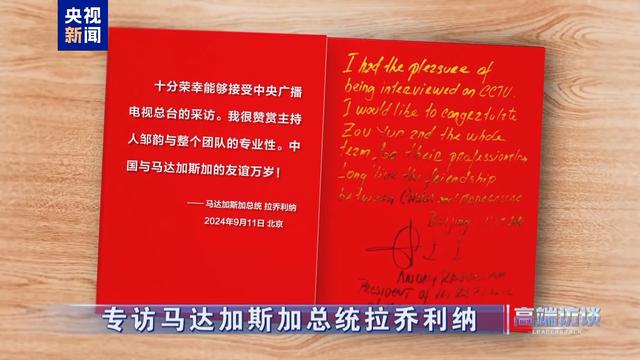 央视
新闻
十分荣幸能够接受中央广播
电视总台的采访。我很赞赏主持
人邹韵与整个团队的专业性。中
国与马达加斯加的友谊万岁！
——马达加斯加总统 拉乔利纳
2024年9月11日 北京
I had the pleasure of
being interviewed on CCTV.
I would like to congratulate
Zou Yun and the whole
team for their professionalism
long live the friendship
between China and Madagascar
Beijing
PRESIDENT of the
专访马达加斯加总统拉乔利纳
高端访谈
LEADERS TALK